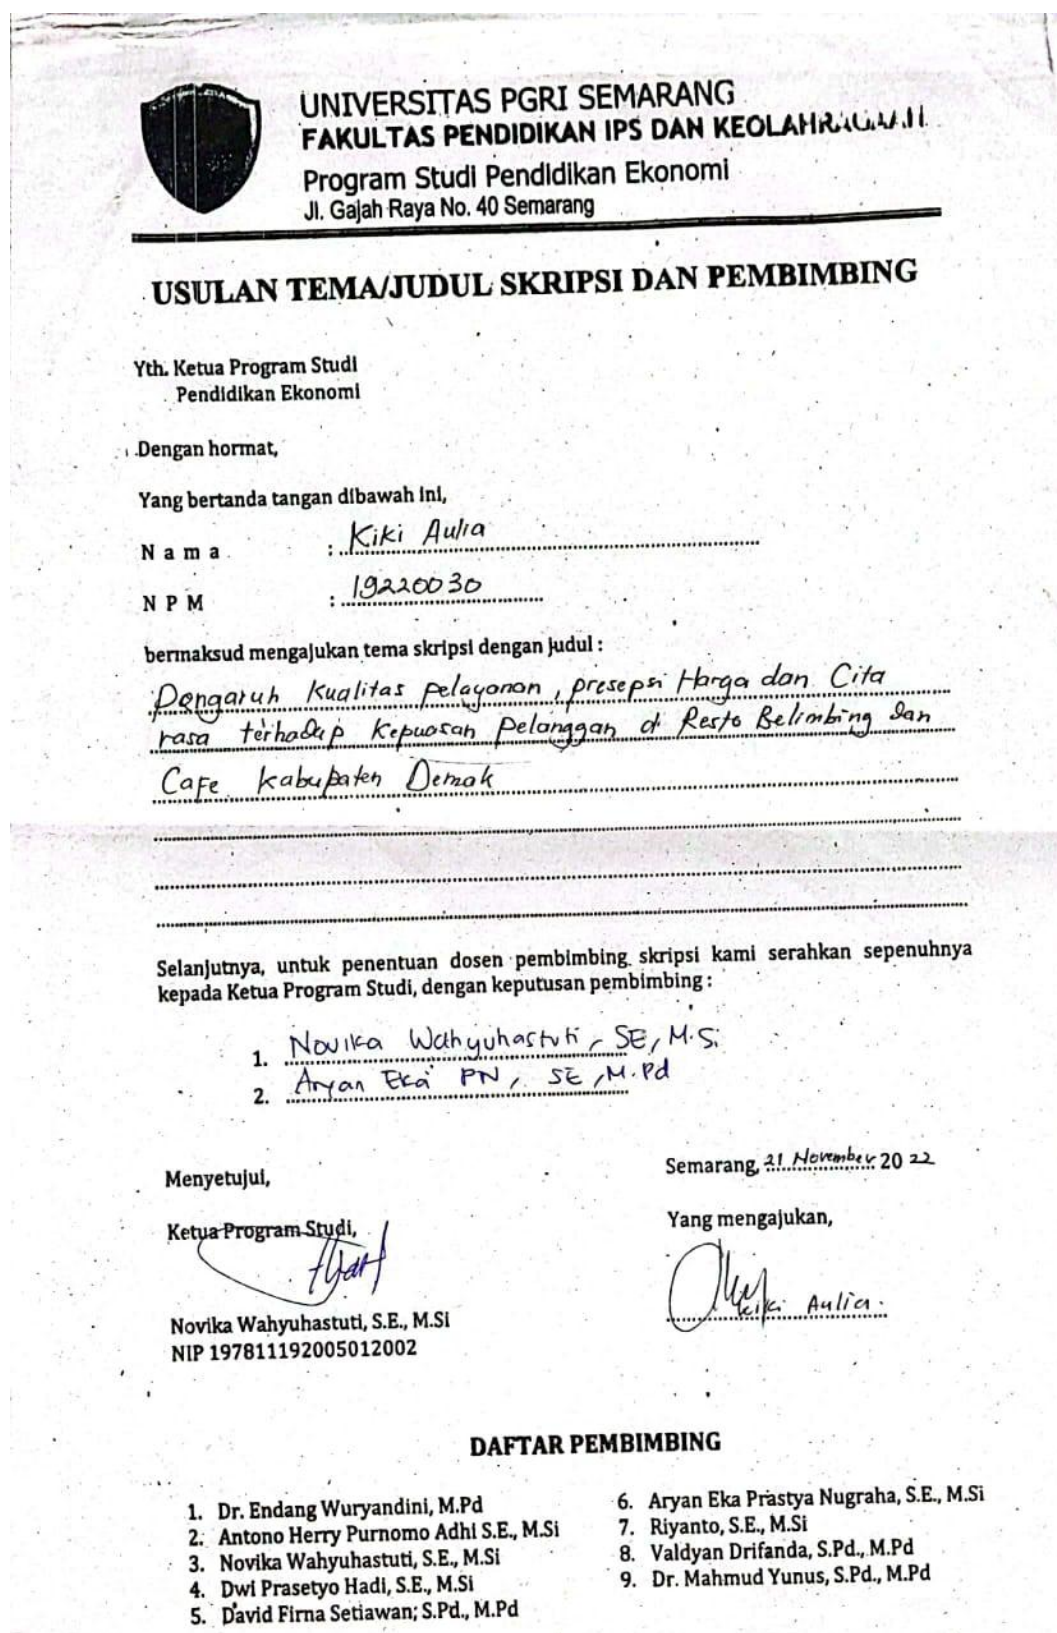 UNIVERSITAS PGRI SEMARANG
FAKULTAS PENDIDIKAN IPS DAN KEOLAHRAGAAN
Program Studi Pendidikan Ekonomi
Jl. Gajah Raya No. 40 Semarang
USULAN TEMA/JUDUL SKRIPSI DAN PEMBIMBING
Yth. Ketua Program Studi
Pendidikan Ekonomi
Dengan hormat,
Yang bertanda tangan dibawah ini,
N a m a : Kiki Aulia
N P M : 19220030
bermaksud mengajukan tema skripsi dengan judul :
Pengaruh Kualitas pelayanan, presepsi Harga dan Cita
rasa terhadap Kepuasan Pelanggan di Resto Belimbing dan
Cafe Kabupaten Demak
Selanjutnya, untuk penentuan dosen pembimbing skripsi kami serahkan sepenuhnya
kepada Ketua Program Studi, dengan keputusan pembimbing :
1. Novika Wahyuhastuti, SE, M.Si
2. Aryan Eka PN, SE, M.Pd
Semarang, 21 November 2022
Menyetujui,
Ketua Program Studi,
Yang mengajukan,
Kiki Aulia.
Novika Wahyuhastuti, S.E., M.Si
NIP 197811192005012002
DAFTAR PEMBIMBING
1. Dr. Endang Wuryandini, M.Pd
2. Antono Herry Purnomo Adhi S.E., M.Si
3. Novika Wahyuhastuti, S.E., M.Si
4. Dwi Prasetyo Hadi, S.E., M.Si
5. David Firna Setiawan; S.Pd., M.Pd
6. Aryan Eka Prastya Nugraha, S.E., M.Si
7. Riyanto, S.E., M.Si
8. Valdyan Drifanda, S.Pd., M.Pd
9. Dr. Mahmud Yunus, S.Pd., M.Pd